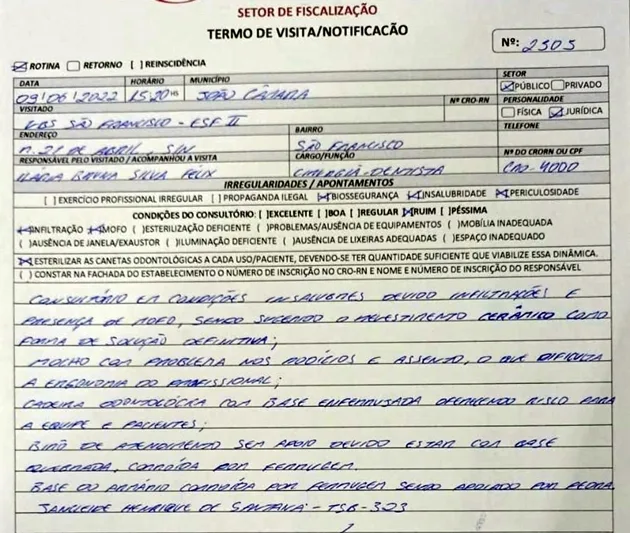 SETOR DE FISCALIZAÇÃO
TERMO DE VISITA/NOTIFICACÃO
Nº: 2305
ROTINA RETORNO [ ] REINSCIDÊNCIA
DATA HORÁRIO MUNICÍPIO SETOR
09/06/2022 15:20 HS JOÃO CÂMARA PÚBLICO PRIVADO
VISITADO Nº CRO-RN PERSONALIDADE
UBS SÃO FRANCISCO - ESF II FÍSICA JURÍDICA
ENDEREÇO BAIRRO TELEFONE
R. 21 DE ABRIL, S/N SÃO FRANCISCO
RESPONSÁVEL PELO VISITADO / ACOMPANHOU A VISITA CARGO/FUNÇÃO Nº DO CRORN OU CPF
BRUNA SILVA FÉLIX CIRURGIÃ-DENTISTA CRO-4000
IRREGULARIDADES / APONTAMENTOS
[ ] EXERCÍCIO PROFISSIONAL IRREGULAR [ ] PROPAGANDA ILEGAL [X] BIOSSEGURANÇA [X] INSALUBRIDADE [X] PERICULOSIDADE
CONDIÇÕES DO CONSULTÓRIO: [ ]EXCELENTE [ ]BOA [ ]REGULAR [X]RUIM [ ]PÉSSIMA
(X)INFILTRAÇÃO (X)MOFO ( )ESTERILIZAÇÃO DEFICIENTE ( )PROBLEMAS/AUSÊNCIA DE EQUIPAMENTOS ( )MOBÍLIA INADEQUADA
( )AUSÊNCIA DE JANELA/EXAUSTOR ( )ILUMINAÇÃO DEFICIENTE ( )AUSÊNCIA DE LIXEIRAS ADEQUADAS ( )ESPAÇO INADEQUADO
(X)ESTERILIZAR AS CANETAS ODONTOLÓGICAS A CADA USO/PACIENTE, DEVENDO-SE TER QUANTIDADE SUFICIENTE QUE VIABILIZE ESSA DINÂMICA.
( ) CONSTAR NA FACHADA DO ESTABELECIMENTO O NÚMERO DE INSCRIÇÃO NO CRO-RN E NOME E NÚMERO DE INSCRIÇÃO DO RESPONSÁVEL
CONSULTÓRIO EM CONDIÇÕES INSALUBRES DEVIDO INFILTRAÇÕES E
PRESENÇA DE MOFO, SENDO SUGERIDO O REVESTIMENTO CERÂMICO COMO
FORMA DE SOLUÇÃO DEFINITIVA;
MOCHO COM PROBLEMA NOS RODÍCIOS E ASSENTO, O QUE DIFICULTA
A ERGONOMIA DO PROFISSIONAL;
CADEIRA ODONTOLÓGICA COM BASE ENFERRUJADA OFERECENDO RISCO PARA
A EQUIPE E PACIENTES;
BIRÔ DE ATENDIMENTO SEM APOIO DEVIDO ESTAR COM BASE
QUEBRADA, CORROÍDA POR FERRUGEM.
BASE DO ARMÁRIO CORROÍDA POR FERRUGEM SENDO APOIADO POR PEDRA.
JANCLEIDE HENRIQUE DE SANTANA - TSB-323